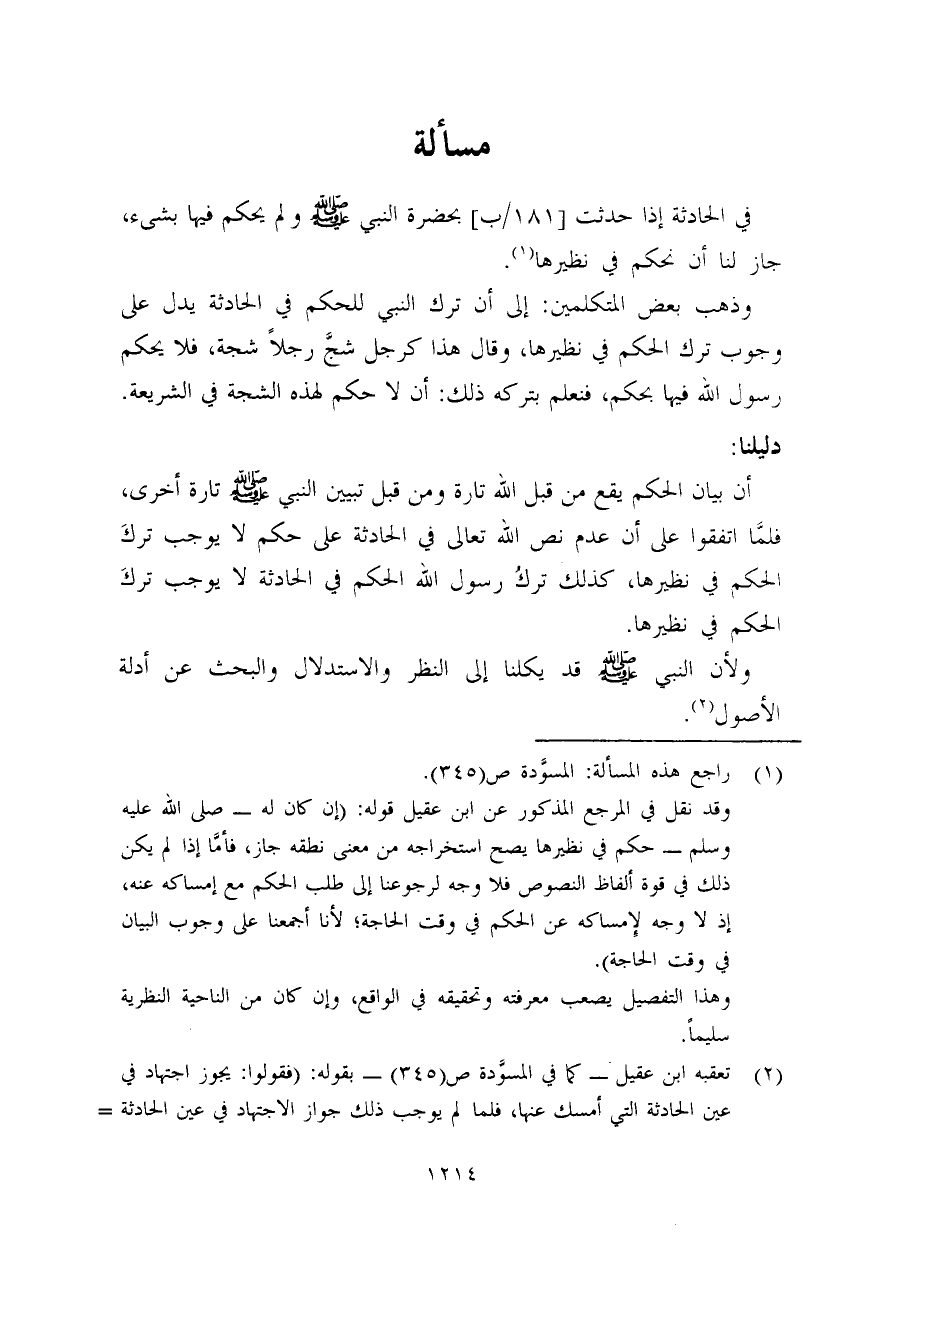 مسألة
في الحادثة إذا حدثت [١٨١/ب] بحضرة النبي ﷺ ولم يحكم فيها بشىء،
جاز لنا أن نحكم في نظيرها(١).
وذهب بعض المتكلمين: إلى أن ترك النبي للحكم في الحادثة يدل على
وجوب ترك الحكم في نظيرها، وقال هذا كرجل شجَّ رجلاً شجة، فلا يحكم
رسول الله فيها بحكم، فنعلم بتركه ذلك: أن لا حكم لهذه الشجة في الشريعة.
دليلنا:
أن بيان الحكم يقع من قبل الله تارة ومن قبل تبيين النبي ﷺ تارة أخرى،
فلمَّا اتفقوا على أن عدم نص الله تعالى في الحادثة على حكم لا يوجب تركَ
الحكم في نظيرها، كذلك تركُ رسول الله الحكم في الحادثة لا يوجب تركَ
الحكم في نظيرها.
ولأن النبي ﷺ قد يكلنا إلى النظر والاستدلال والبحث عن أدلة
الأصول(٢).
(١) راجع هذه المسألة: المسوَّدة ص(٣٤٥).
وقد نقل في المرجع المذكور عن ابن عقيل قوله: (إن كان له — صلى الله عليه
وسلم — حكم في نظيرها يصح استخراجه من معنى نطقه جاز، فأمَّا إذا لم يكن
ذلك في قوة ألفاظ النصوص فلا وجه لرجوعنا إلى طلب الحكم مع إمساكه عنه،
إذ لا وجه لإمساكه عن الحكم في وقت الحاجة؛ لأنا أجمعنا على وجوب البيان
في وقت الحاجة).
وهذا التفصيل يصعب معرفته وتحقيقه في الواقع، وإن كان من الناحية النظرية
سليماً.
(٢) تعقبه ابن عقيل — كما في المسوَّدة ص(٣٤٥) — بقوله: (فقولوا: يجوز اجتهاد في
عين الحادثة التي أمسك عنها، فلما لم يوجب ذلك جواز الاجتهاد في عين الحادثة =
١٢١٤